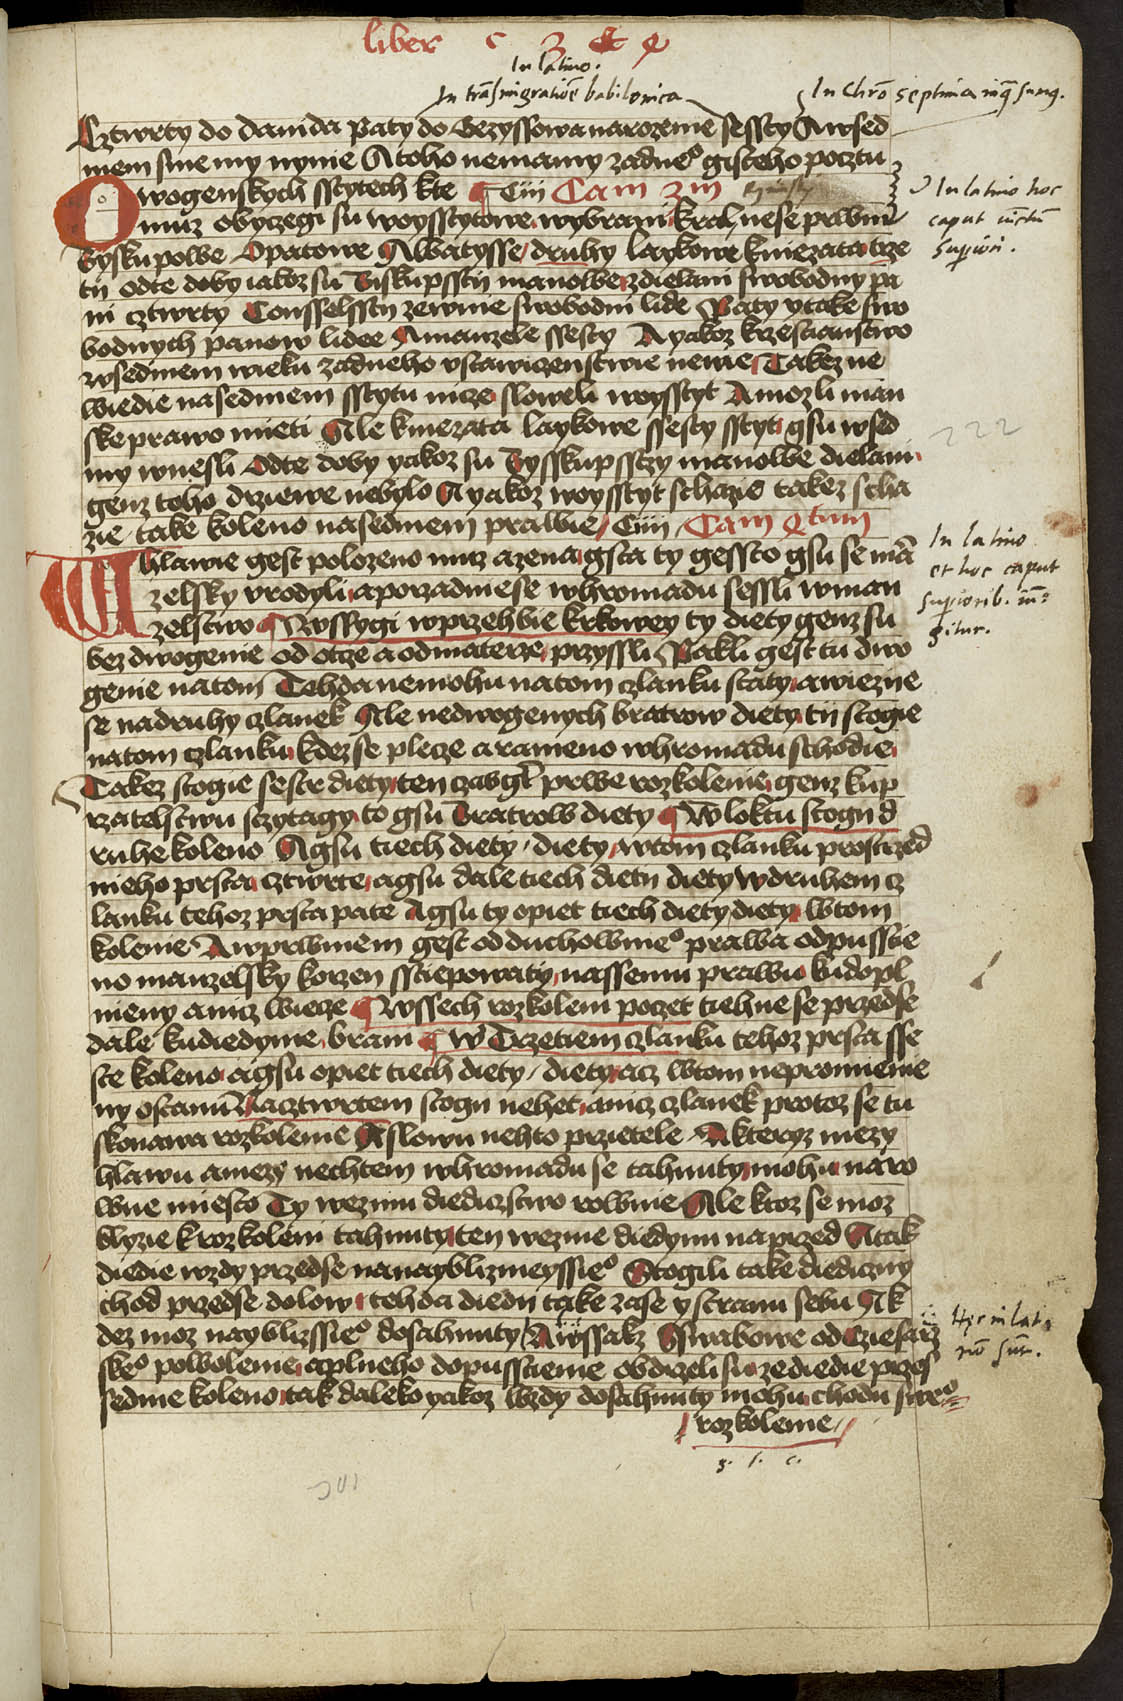 liber c 3 et 4
In latino.
In trāsmigratiōē babilonica
In Chrō septima
Cztwrty do dauida Paty do Gezyssowa narozenie ssesty A wsed
mem sme my nynie A toho nemamy zadneo gisteho pocztu
O wogenskych sstytech kte Ciii Cam 3m
muz obyczegi su woysstytowe wybrani Kral nese prwni
Byskupowe Opatowe Abatysse druhy laykowe kniezata trze
tii odte doby iakoz su Biskupsstij manowe zdielani swobodny pa
ni cztwrty Consselsstij zemnie swobodni lide Paty y take swo
bodnych panow lidee A manzele ssesty A yakoz krzestianstwo
wsedmem wieku zadneho vstawiczenstwie nenie Takez ne
wiedie nasedmem sstytu mize sloweli woysstyt A mozli man
ske prawo mieti Ale kniezata laykowe ssesty sstyt gsu wsed
my wnesli Odte doby yakoz su Bysskupssczy manowe dielani
genz toho drziewe nebylo A yakoz woysstyt schazie takez scha
zie take koleno nasedmem prawie Ciiii Cam 4tum
W hlawie gest polozeno muz a zena gsta ty gessto gsu se mā
zelsky vrodyli a porzadnie se whromadu sessli wman
zelstwo Wssygi wprzehbie krkowey ty diety genz su
bez dwogenie od otcze a od materze przyssli Pakli gest tu dwo
genie natom Tehda nemohu natom czlanku staty a wiezne
se nadruhy czlanek Ale nedwogenych bratrow diety tij stogie
natom czlanku kdez se plecze a rameno whromadu schodie
Takez stogie sestr diety ten prwe rozkolenie genz kup
rzatelstwu sczytagy to gsu Bratrow diety W loktu stogi d
ruhe koleno A gsu tiech diety diety wtom czlanku prostrzed
nieho prsta cztwrte a gsu dale tiech dieti diety wdruhem cz
lanku tehoz prsta pate A gsu ty opiet tiech diety diety wtom
kolenie A wprwniem gest od duchowneo prawa odpusstie
no manzelsky korzen sstiepowaty nassemu prawu kudopl
nieny a nicz wiecze Wssech rozkoleni poczet tiehne se przedse
dale kudiedyme brani W Trzetiem czlanku tehoz prsta sse
ste koleno a gsu opiet tiech diety diety acz wtom nepromienie
ny ostanu Na cztwrtem stogi nehet a nicz czlanek protoz se tu
skonawa rozkolenie A slowu nehto przietele A kteryz mezy
hlawu a mezy nechtem whromadu se tahnuty mohu naro
wne miesto Ty wezmu diedicztwo rownie Ale ktoz se moz
blyzie krozkoleni tahnuty ten wezme diedynu naprzed A tak
diedie wzdy przedse nanayblizneyssieo Stogili take diediczny
chod przedse dolow tehda diedii take zase y stranu sebu A k
dez moz nayblizssieo dosahnuty A wssakz Sswabowe od Cziesarz
skeo powolenie a plneho dopusstienie obdrzeli su ze diedie przes
sedme koleno tak daleko yakoz wzdy dosahnuty mohu chodu sweo
rozkolenie
In latino hoc
caput iūctū
supiori.
222
In latino
et hoc caput
supiorib. iū=
gitur.